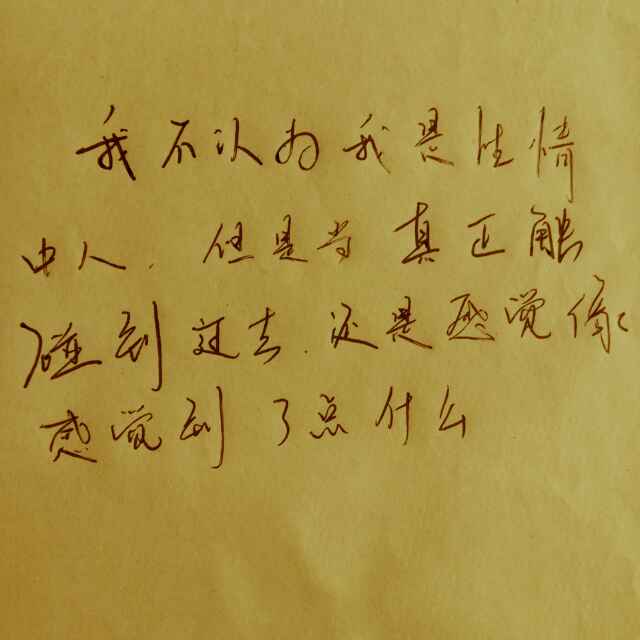 我不认为我是性情
中人. 但是当真正触
碰到过去. 还是感觉像
感觉到了点什么